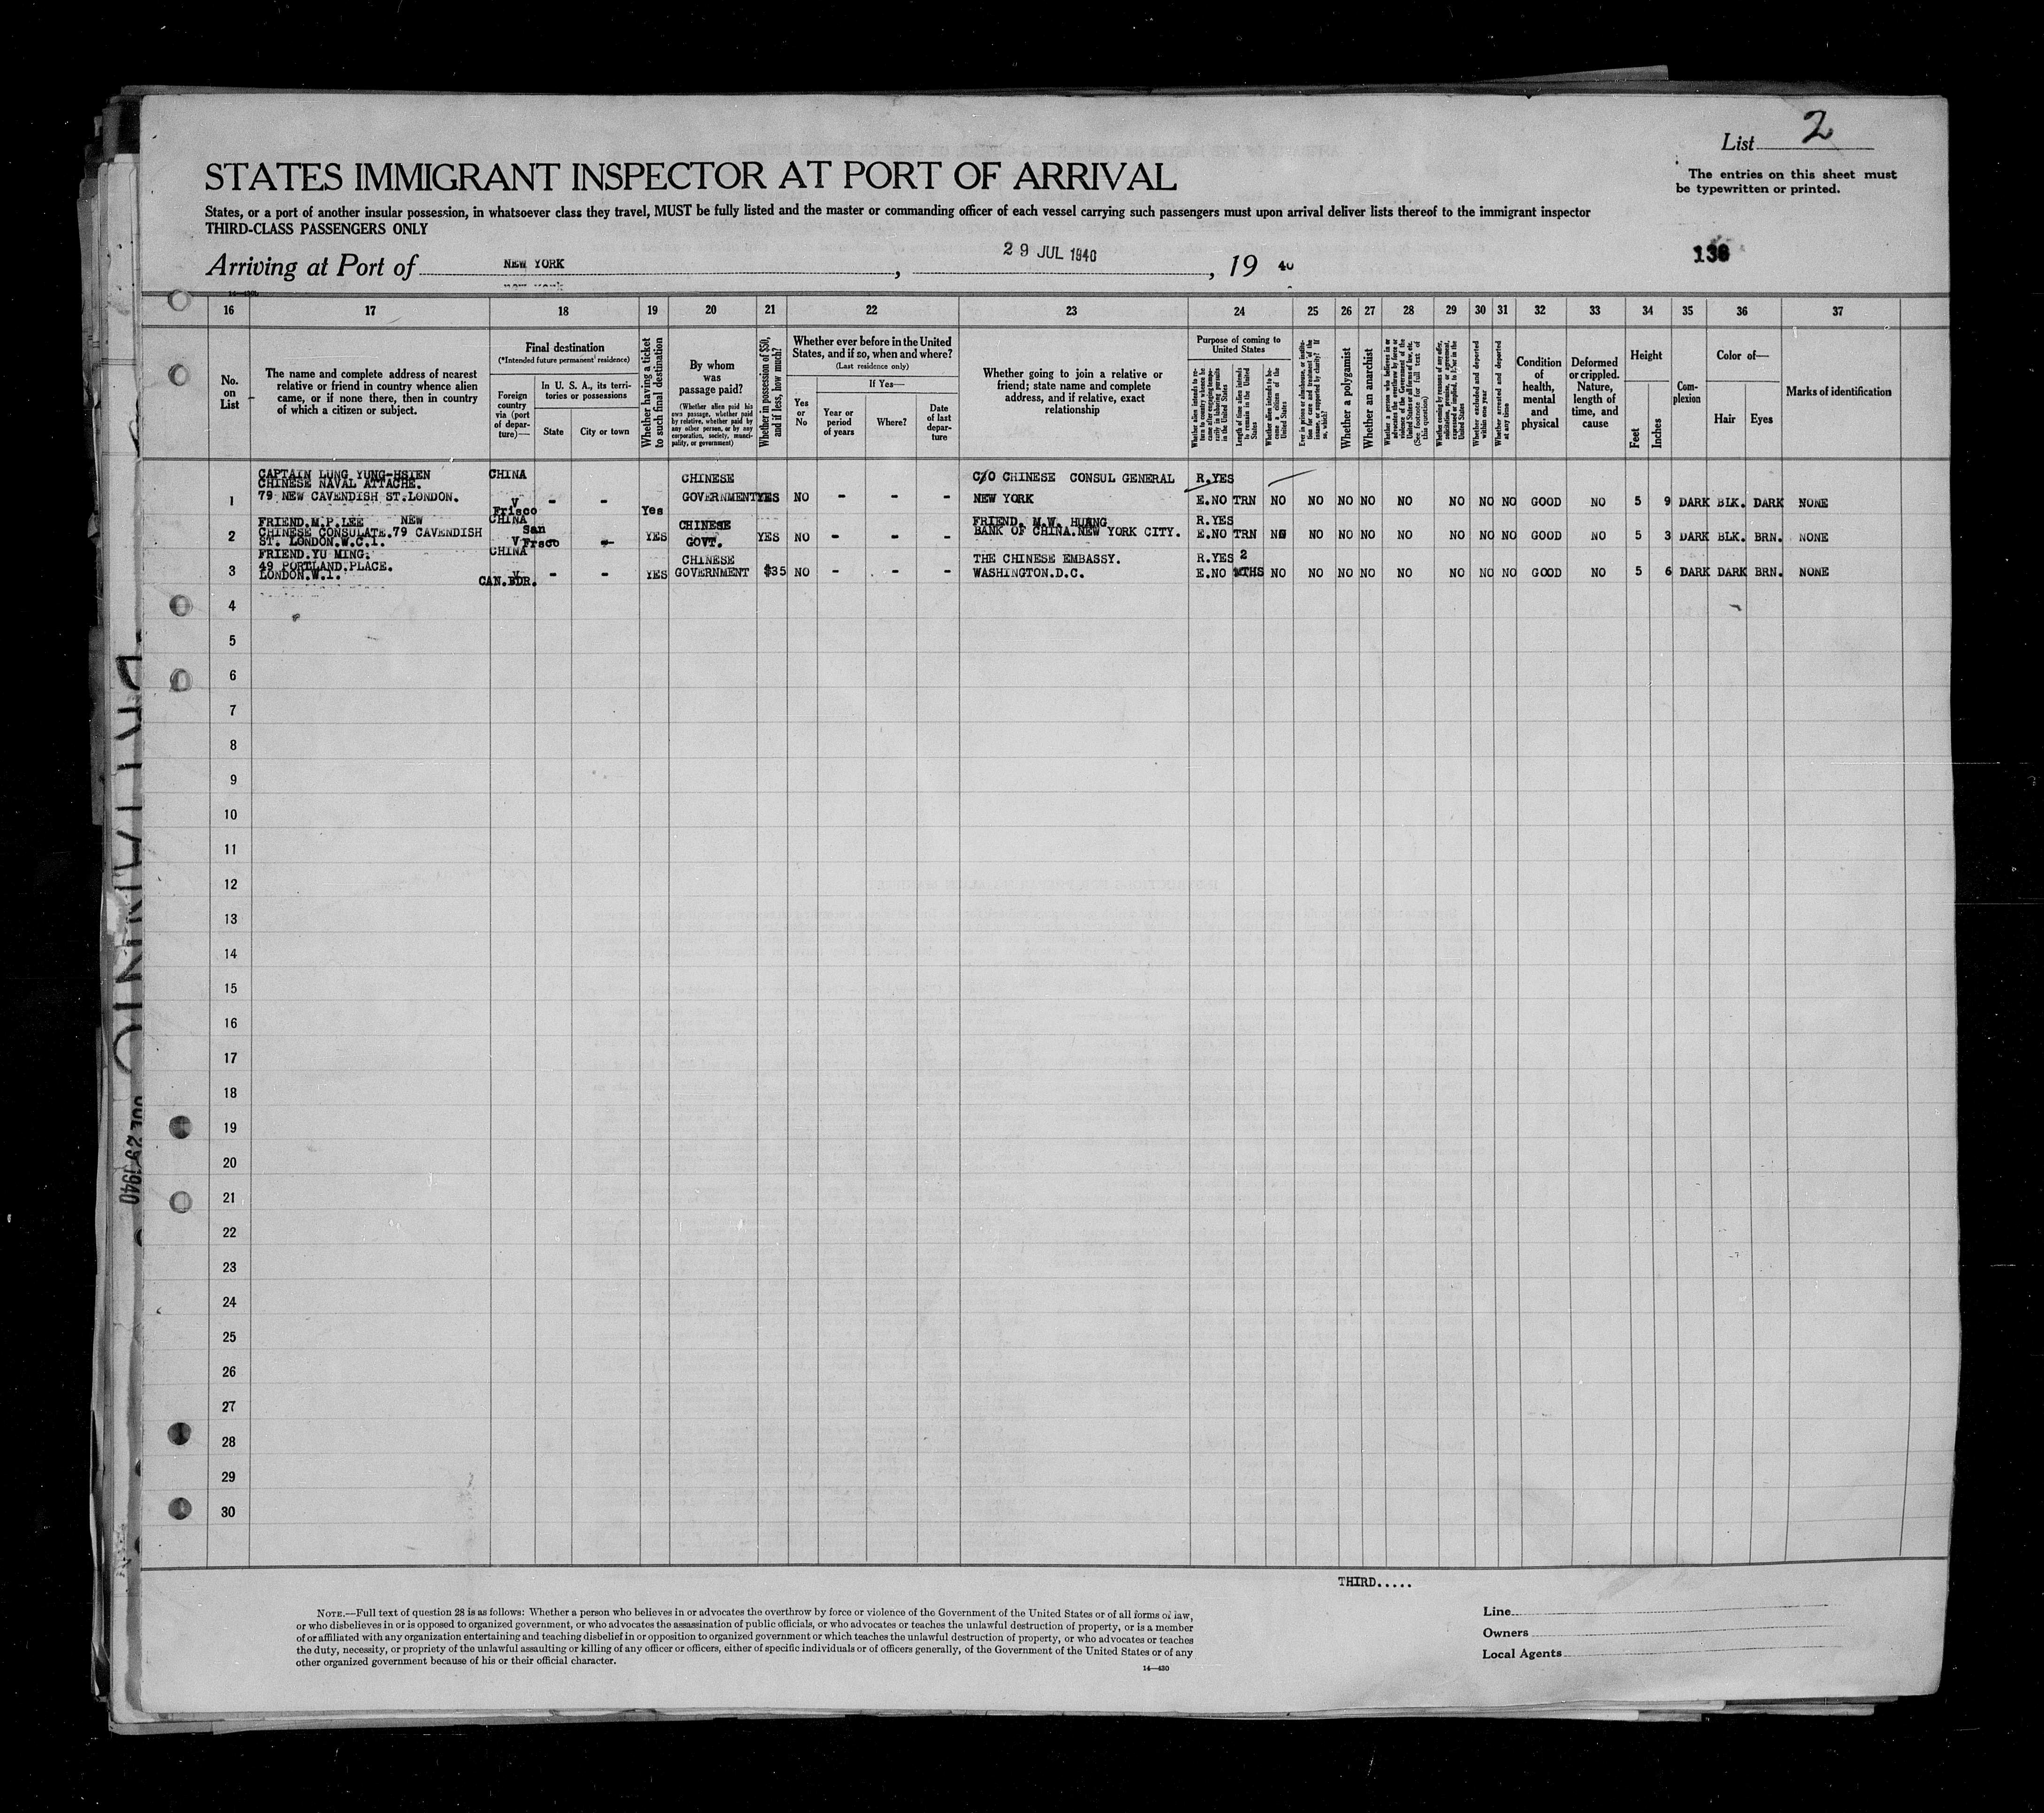 List 2
STATES IMMIGRANT INSPECTOR AT PORT OF ARRIVAL
The entries on this sheet must
be typewritten or printed.
States, or a port of another insular possession, in whatsoever class they travel, MUST be fully listed and the master or commanding officer of each vessel carrying such passengers must upon arrival deliver lists thereof to the immigrant inspector
THIRD-CLASS PASSENGERS ONLY
Arriving at Port of NEW YORK, 29 JUL 1940, 19 40
136
16 17 18 19 20 21 22 23 24 25 26 27 28 29 30 31 32 33 34 35 36 37
No. on List
The name and complete address of nearest
relative or friend in country whence alien
came, or if none there, then in country
of which a citizen or subject.
Final destination
(*Intended future permanent residence)
Foreign country via (port of departure)—
In U. S. A., its territories or possessions
State
City or town
Whether having a ticket to such final destination
By whom was passage paid?
(Whether alien paid his own passage, whether paid by relative, whether paid by any other person, or by any corporation, society, municipality, or government)
Whether in possession of $50, and if less, how much?
Whether ever before in the United States, and if so, when and where?
(Last residence only)
Yes or No
If Yes—
Year or period of years
Where?
Date of last departure
Whether going to join a relative or
friend; state name and complete
address, and if relative, exact
relationship
Purpose of coming to United States
Whether alien intends to return to country whence he came after engaging temporarily in laboring pursuits in the United States
Length of time alien intends to remain in the United States
Whether alien intends to become a citizen of the United States
Ever in prison or almshouse, or institution for care and treatment of the insane, or supported by charity? If so, which?
Whether a polygamist
Whether an anarchist
Whether a person who believes in or advocates the overthrow by force or violence of the Government of the United States or all forms of law, etc. (See footnote for full text of this question)
Whether coming by reasons of any offer, solicitation, promise, or agreement, expressed or implied, to labor in the United States
Whether excluded and deported within one year
Whether arrested and deported at any time
Condition of health, mental and physical
Deformed or crippled. Nature, length of time, and cause
Height
Feet
Inches
Complexion
Color of—
Hair
Eyes
Marks of identification
1 CAPTAIN LUNG YUNG-HSIEN
CHINESE NAVAL ATTACHE.
79 NEW CAVENDISH ST.LONDON.
CHINA V Frisco - - Yes CHINESE GOVERNMENT YES NO - - - C/O CHINESE CONSUL GENERAL NEW YORK R.YES E.NO TRN NO NO NO NO NO NO NO NO GOOD NO 5 9 DARK BLK. DARK NONE
2 FRIEND.M.P.LEE NEW
CHINESE CONSULATE.79 CAVENDISH
ST. LONDON.W.C.I.
CHINA V San Frsco - YES CHINESE GOVT. YES NO - - - FRIEND. M.W. HUANG BANK OF CHINA.NEW YORK CITY. R.YES E.NO TRN NO NO NO NO NO NO NO NO GOOD NO 5 3 DARK BLK. BRN. NONE
3 FRIEND.YU MING.
49 PORTLAND.PLACE.
LONDON.W.1.
CHINA V CAN.BDR. - - YES CHINESE GOVERNMENT $35 NO - - - THE CHINESE EMBASSY. WASHINGTON.D.C. R.YES E.NO 2 MTHS NO NO NO NO NO NO NO NO GOOD NO 5 6 DARK DARK BRN. NONE
4
5
6
7
8
9
10
11
12
13
14
15
16
17
18
19
20
21
22
23
24
25
26
27
28
29
30
JUL 29 1940
THIRD.....
NOTE.—Full text of question 28 is as follows: Whether a person who believes in or advocates the overthrow by force or violence of the Government of the United States or of all forms of law,
or who disbelieves in or is opposed to organized government, or who advocates the assassination of public officials, or who advocates or teaches the unlawful destruction of property, or is a member
of or affiliated with any organization entertaining and teaching disbelief in or opposition to organized government or which teaches the unlawful destruction of property, or who advocates or teaches
the duty, necessity, or propriety of the unlawful assaulting or killing of any officer or officers, either of specific individuals or of officers generally, of the Government of the United States or of any
other organized government because of his or their official character.
14—430
Line
Owners
Local Agents